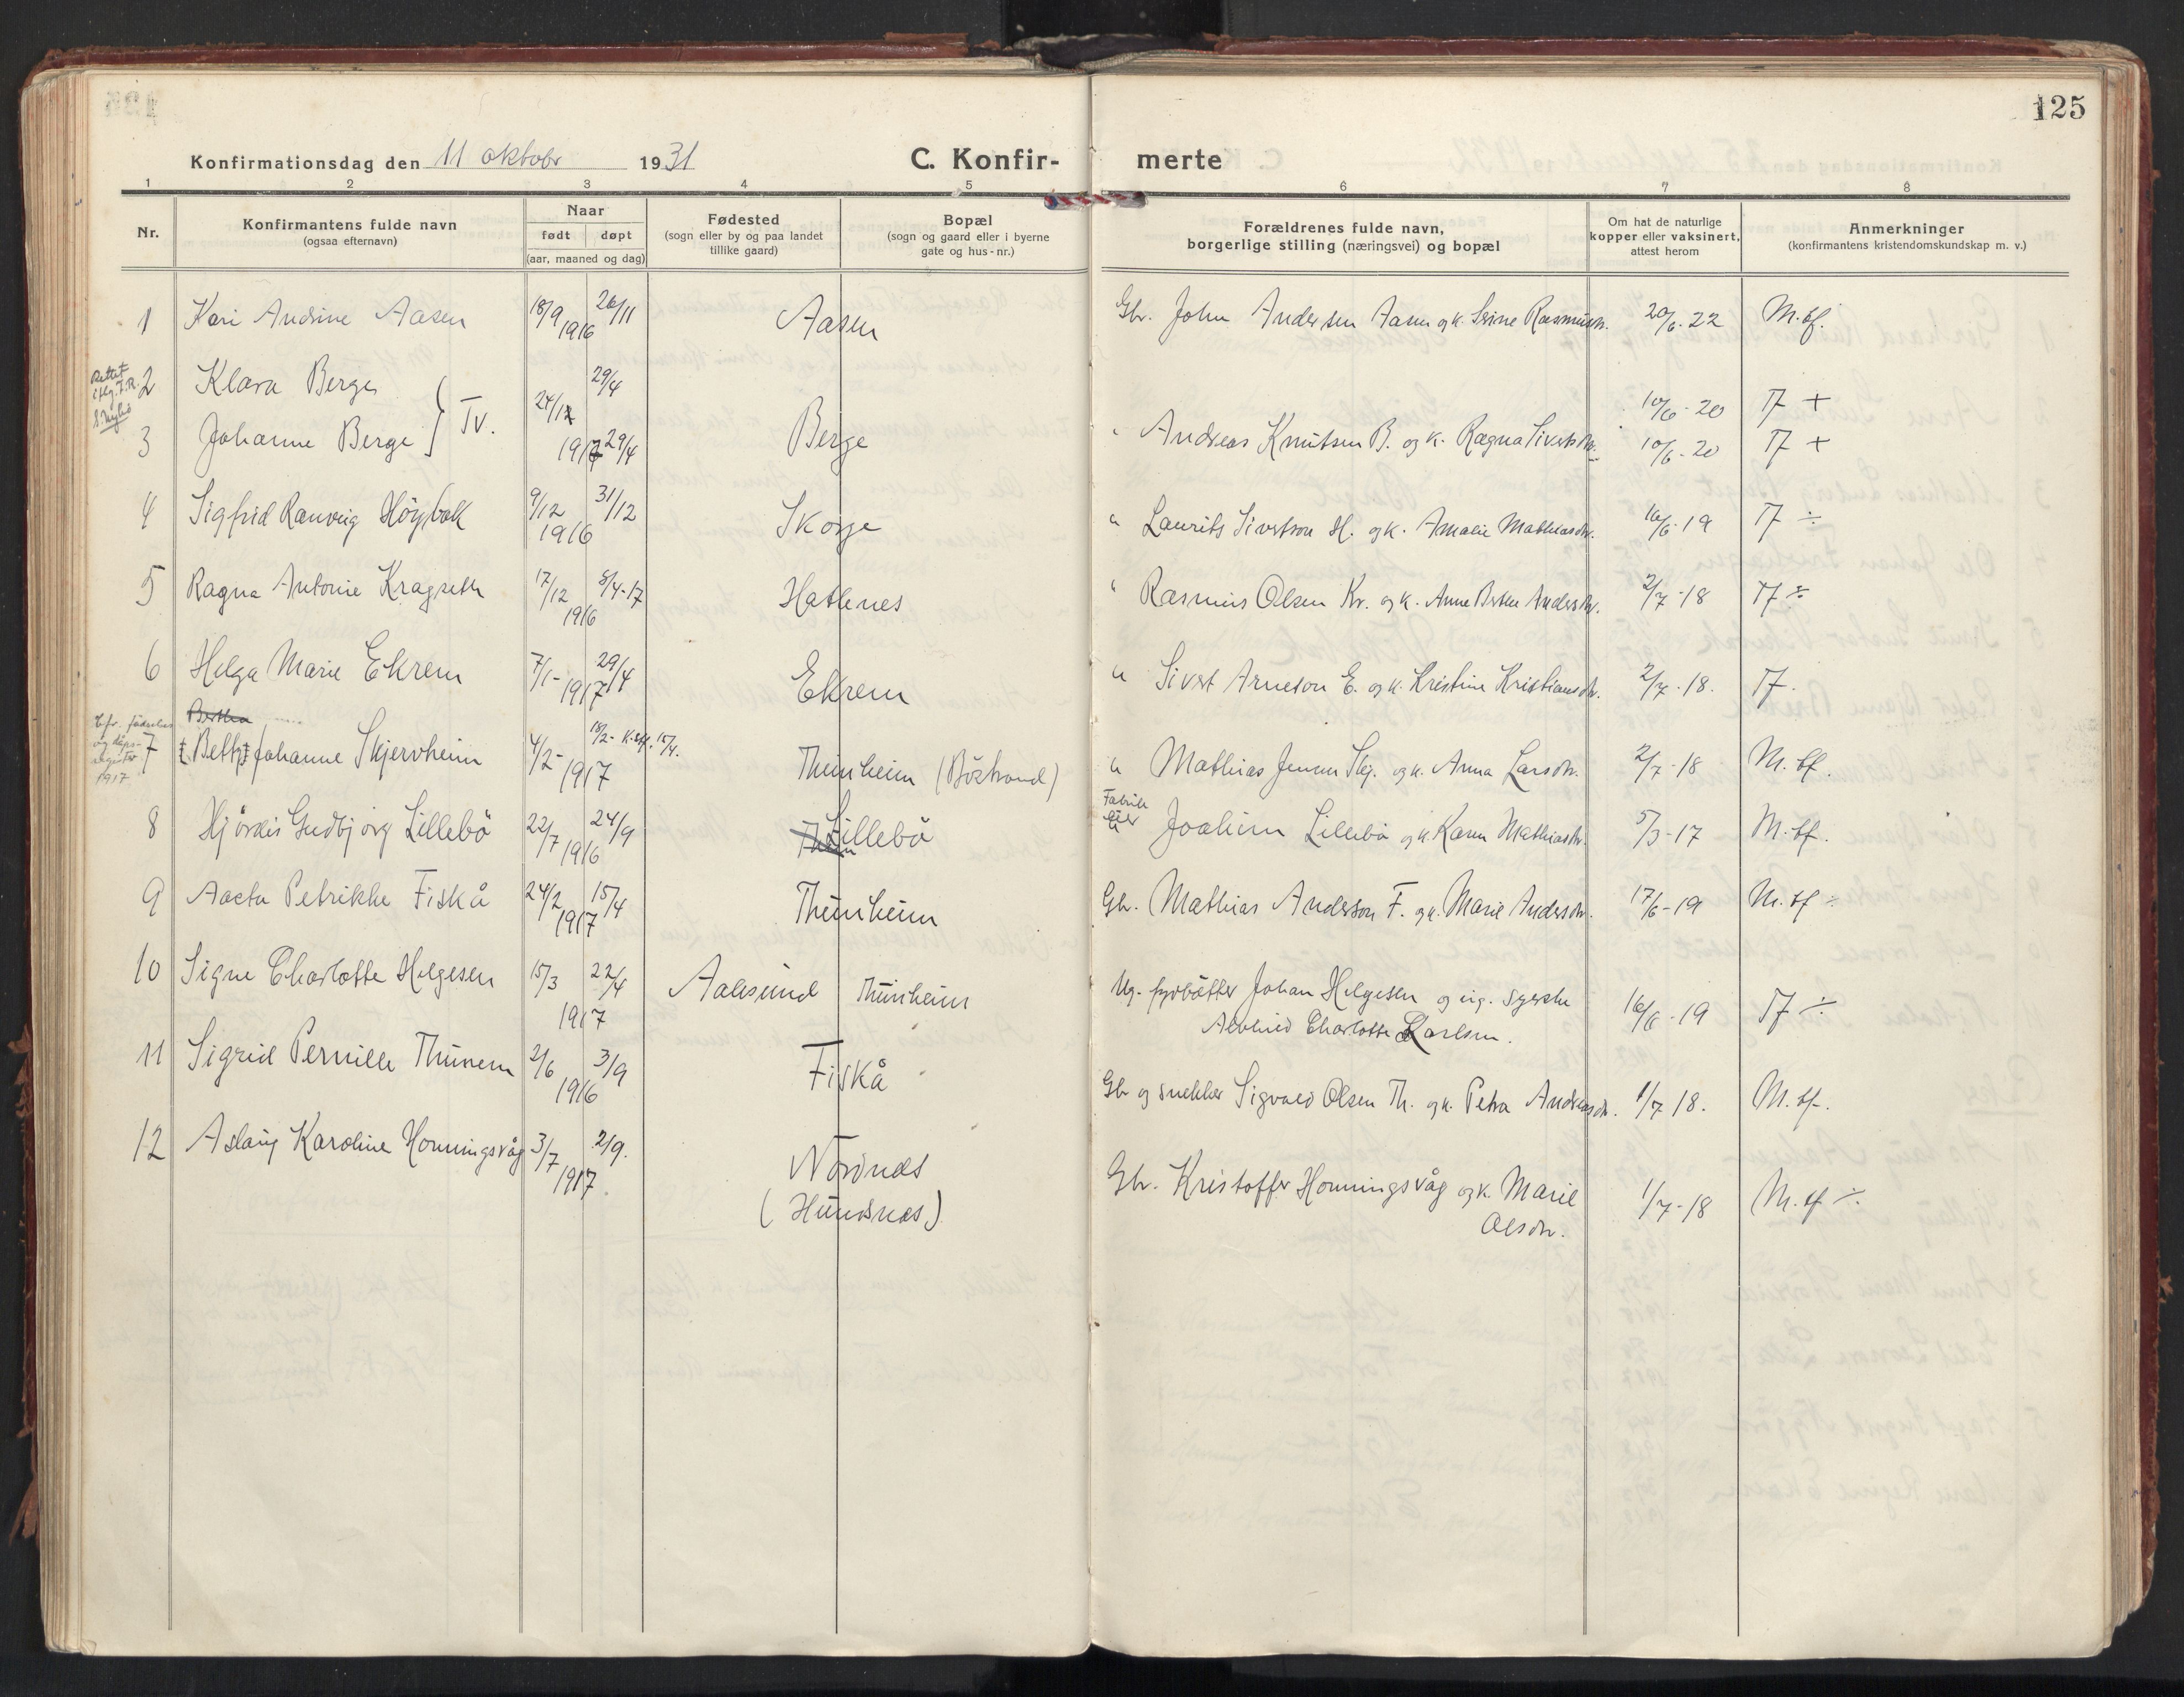 125
Konfirmationsdag den 11 oktobr 1931
C. Konfirmerte
1 2 3 4 5 6 7 8
Nr.
Konfirmantens fulde navn
(ogsaa efternavn)
Naar
født døpt
(aar, maaned og dag)
Fødested
(sogn eller by og paa landet
tillike gaard)
Bopæl
(sogn og gaard eller i byerne
gate og hus-nr.)
Forældrenes fulde navn,
borgerlige stilling (næringsvei) og bopæl
Om hat de naturlige
kopper eller vaksinert,
attest herom
Anmerkninger
(konfirmantens kristendomskundskap m. v.)
1 Kari Andrine Aasen 18/9 1916 26/11 Aasen Gbr. John Andersen Aasen og k. Serine Rasmusdr. 20/6-22 M.tf.
Rettet
2 Klara Berge 29/4 10/6-20 Tf +
} Tv. 24/12
3 Johanne Berge 1917 29/4 Berge " Andreas Knutsen B. og k. Ragna Sivertsdr. 10/6-20 Tf +
4 Sigfrid Ranveig Höybak 9/12 1916 31/12 Skorge " Laurits Sivertson H. og k. Amalie Mathiasdr. 16/6-19 Tf ÷
5 Ragna Antonie Kragseth 17/12 1916 8/4-17 Hatlenes " Rasmus Olsen Kr. og k. Anne Bertee Andersdr. 2/7-18 Tf ÷
6 Helga Marie Ekrem 7/1-1917 29/4 Ekrem " Sivert Arneson E. og k. Kristine Kristiansdr. 2/7-18. Tf.
Bertha
Cfr. fødselss
og døps-
register
1917
7 [Betty] Johanne Skjervheim 4/2-1917 18/2- K. stf. 15/4. Thunheim (Böstrand) " Mathias Jensen Skj. og k. Anna Larsdr. 2/7-18 M.tf.
8 Hjördis Gudbjorg Lillebö 22/7 1916 24/9 Lillebö Fabrik
eier Joakim Lillebö og k Karen Mathiasdr. 5/3-17 M.tf.
9 Aasta Petrikke Fiskå 24/2 1917 15/4 Thunheim Gbr. Mathias Anderson F. og k. Marie Andersdr. 17/6-19 M.tf ÷
10 Signe Charlotte Helgesen 15/3 1917 22/4 Aalesund Thunheim Ug. fyrbötter Johan Helgesen og ug. syerske
Alvhild Charlotte Karlsen. 16/6-19 Tf ÷
11 Sigrid Pernille Thunem 2/6 1916 3/9 Fiskå Gbr og snekker Sigvald Olsen Th. og k. Petra Andreasdr. 1/7 18. M.tf.
12 Aslaug Karoline Honningsvåg 3/7 1917 2/9. Nordnes
(Hundsnes) Gbr. Kristoffer Honningsvåg og k. Marie
Olsdr. 1/7-18 M.tf ÷.